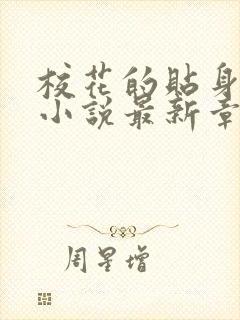 校花的貼身
小說最新章
周星增